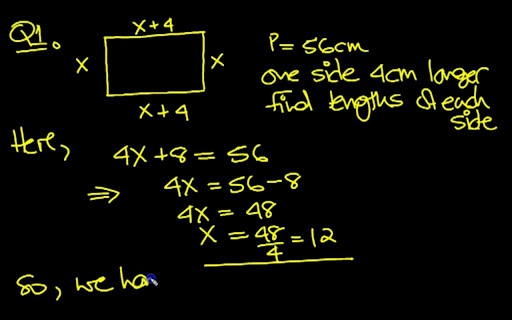 Q1.
x+4
x
x
x+4
P = 56cm
one side 4cm longer
find lengths of each
side
Here,
4x+8 = 56
⇒ 4x = 56-8
4x = 48
x = 48/4 = 12
So, we hav